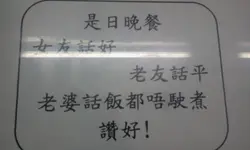 是日晚餐
女友話好
老友話平
老婆話飯都唔駛煮
讚好!